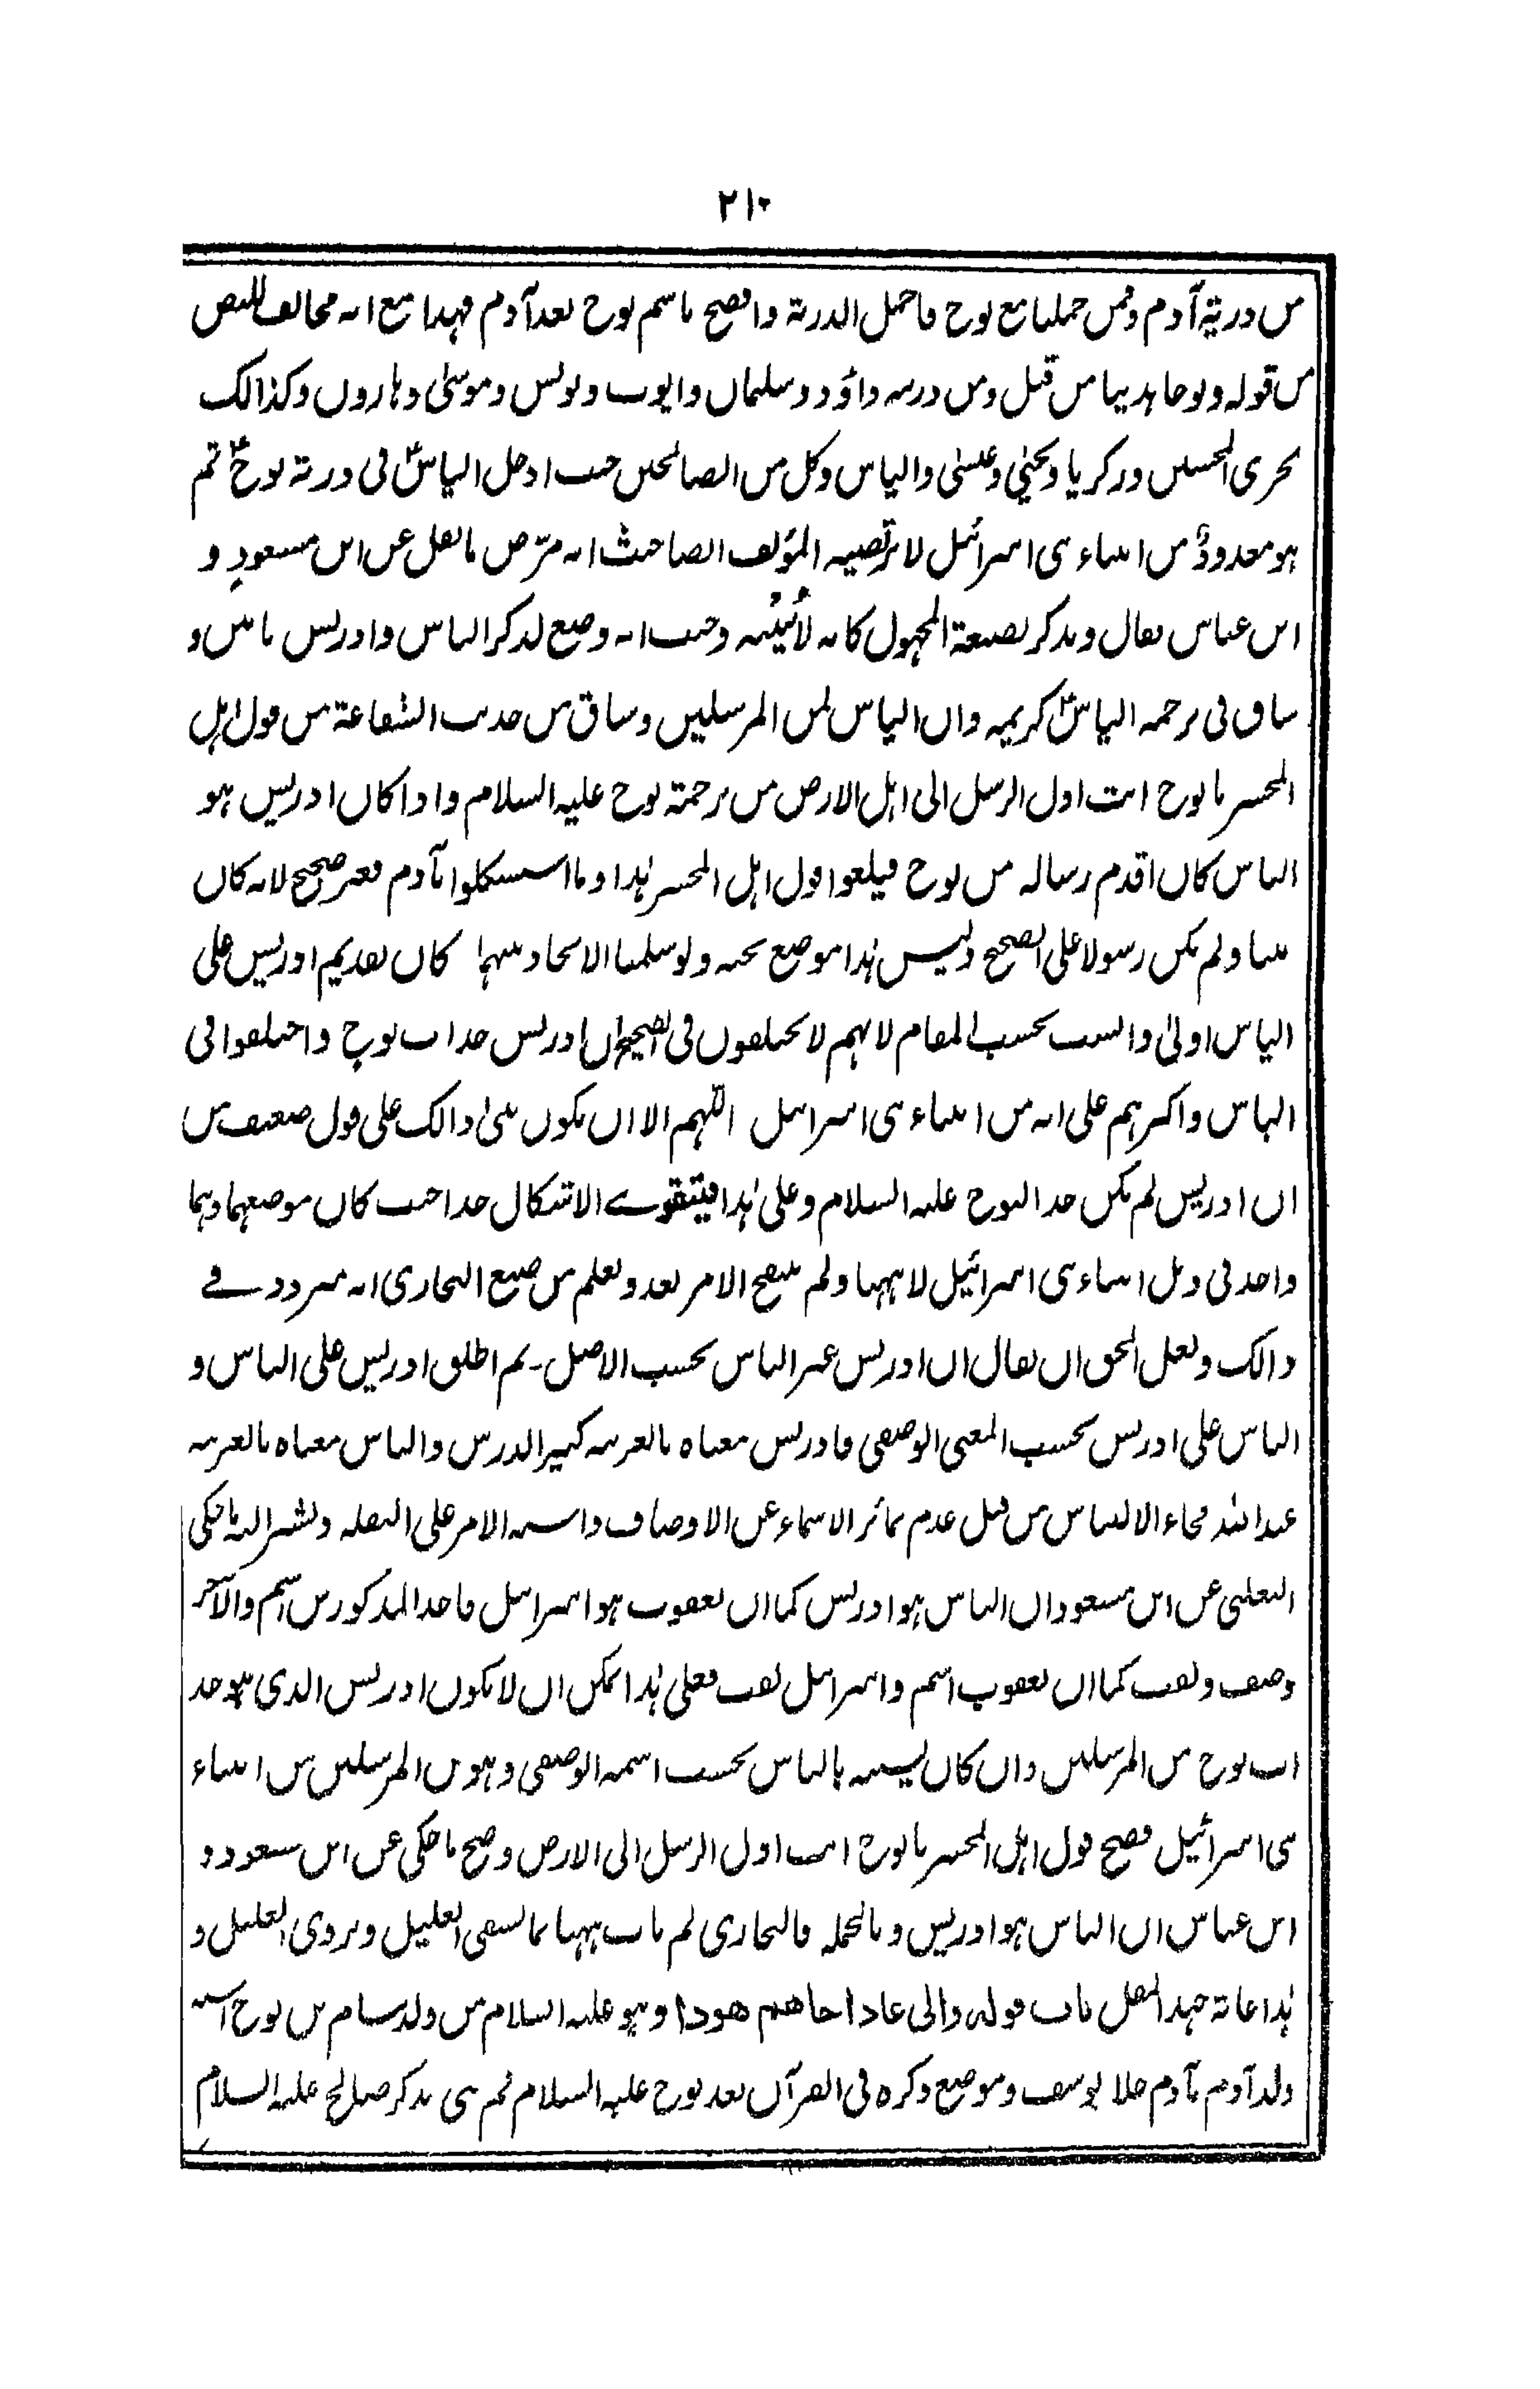 ٢١٠
من ذرية آدم وممن حملنا مع نوح فاجمل الذرية وافصح باسم نوح بعد آدم فهذا مع انه مخالف للنص
من قوله ونوحا هدينا من قبل ومن ذريته داؤد وسليمان وايوب ويونس وموسىٰ وهارون وكذالك
نجزى المحسنين وزكريا ويحيىٰ وعيسىٰ والياس وكل من الصالحين حيث ادخل الياسؑ فى ذرية نوحؑ ثم
هو معدودٌ من انبياء بنى اسرائيل لا يرتضيه المؤلف الصاحيث انه مرّض ما نقل عن ابن مسعودٍ و
ابن عباس فقال ويذكر بصيغة المجهول كانه لا يثبته وحيث انه وضع لذكر الياس وادريس بابين و
ساق فى ترجمة الياسؑ كريمه وان الياس لمن المرسلين وساق من حديث الشفاعة من قول اهل
المحشر يا نوح انت اول الرسل الى اهل الارض من ترجمة نوح عليه السلام واذا كان ادريس هو
الياس كان اقدم رسالة من نوح فيلغو قول اهل المحشر هٰذا وما استشكلوا بآدم فغير صحيح لانه كان
نبيا ولم يكن رسولا على الصحيح وليس هٰذا موضع بحثه ولو سلمنا الاتحاد بينهما كان تقديم ادريس على
الياس اولىٰ وانسب بحسب المقام لانهم لا يختلفون فى الصحيح ان ادريس جد اب نوحٍ واختلفوا فى
الياس واكثرهم على انه من انبياء بنى اسرائيل اللّٰهم الا ان يكون بنىٰ ذالك على قول ضعيف من
ان ادريس لم يكن جدا لنوح عليه السلام وعلى هٰذا فيتقوے الاشكال جدا حيث كان موضعهما وهما
واحد فى ذيل انبياء بنى اسرائيل لا ههنا ولم يتضح الامر بعد ويعلم من صنيع البخارى انه متردد فے
ذالك ولعل الحق ان يقال ان ادريس غير الياس بحسب الاصل۔ ثم اطلق ادريس على الياس و
الياس على ادريس بحسب المعنى الوصفى فادريس معناه بالعربية كثير الدرس والياس معناه بالعربية
عبد اللّٰه فجاء الالتباس من قبل عدم تمائز الاسماء عن الاوصاف واشتبه الامر على النقلة ويشير اليه ما حكى
الثعلبى عن ابن مسعود ان الياس هو ادريس كما ان يعقوب هو اسرائيل فاحد المذكورين اسم والآخر
وصف ولقب كما ان يعقوب اسم واسرائيل لقب فعلى هٰذا يمكن ان لا يكون ادريس الذى هو جد
اب نوح من المرسلين وان كان ليسمه بالياس بحسب اسمه الوصفى وهو من المرسلين من انبياء
بنى اسرائيل فصح قول اهل المحشر يا نوح انت اول الرسل الى الارض وصح ما حكى عن ابن مسعود و
ابن عباس ان الياس هو ادريس وبالجملة فالبخارى لم يات ههنا بما يشفى العليل ويروى الغليل و
هٰذا غاية جهد المقل باب قوله والى عاد اخاهم هودا وهو عليه السلام من ولد سام بن نوح اشبه
ولد آدم بآدم خلا يوسف وموضع ذكره فى القرآن بعد نوح عليه السلام ثم بنى يذكر صالح عليه السلام